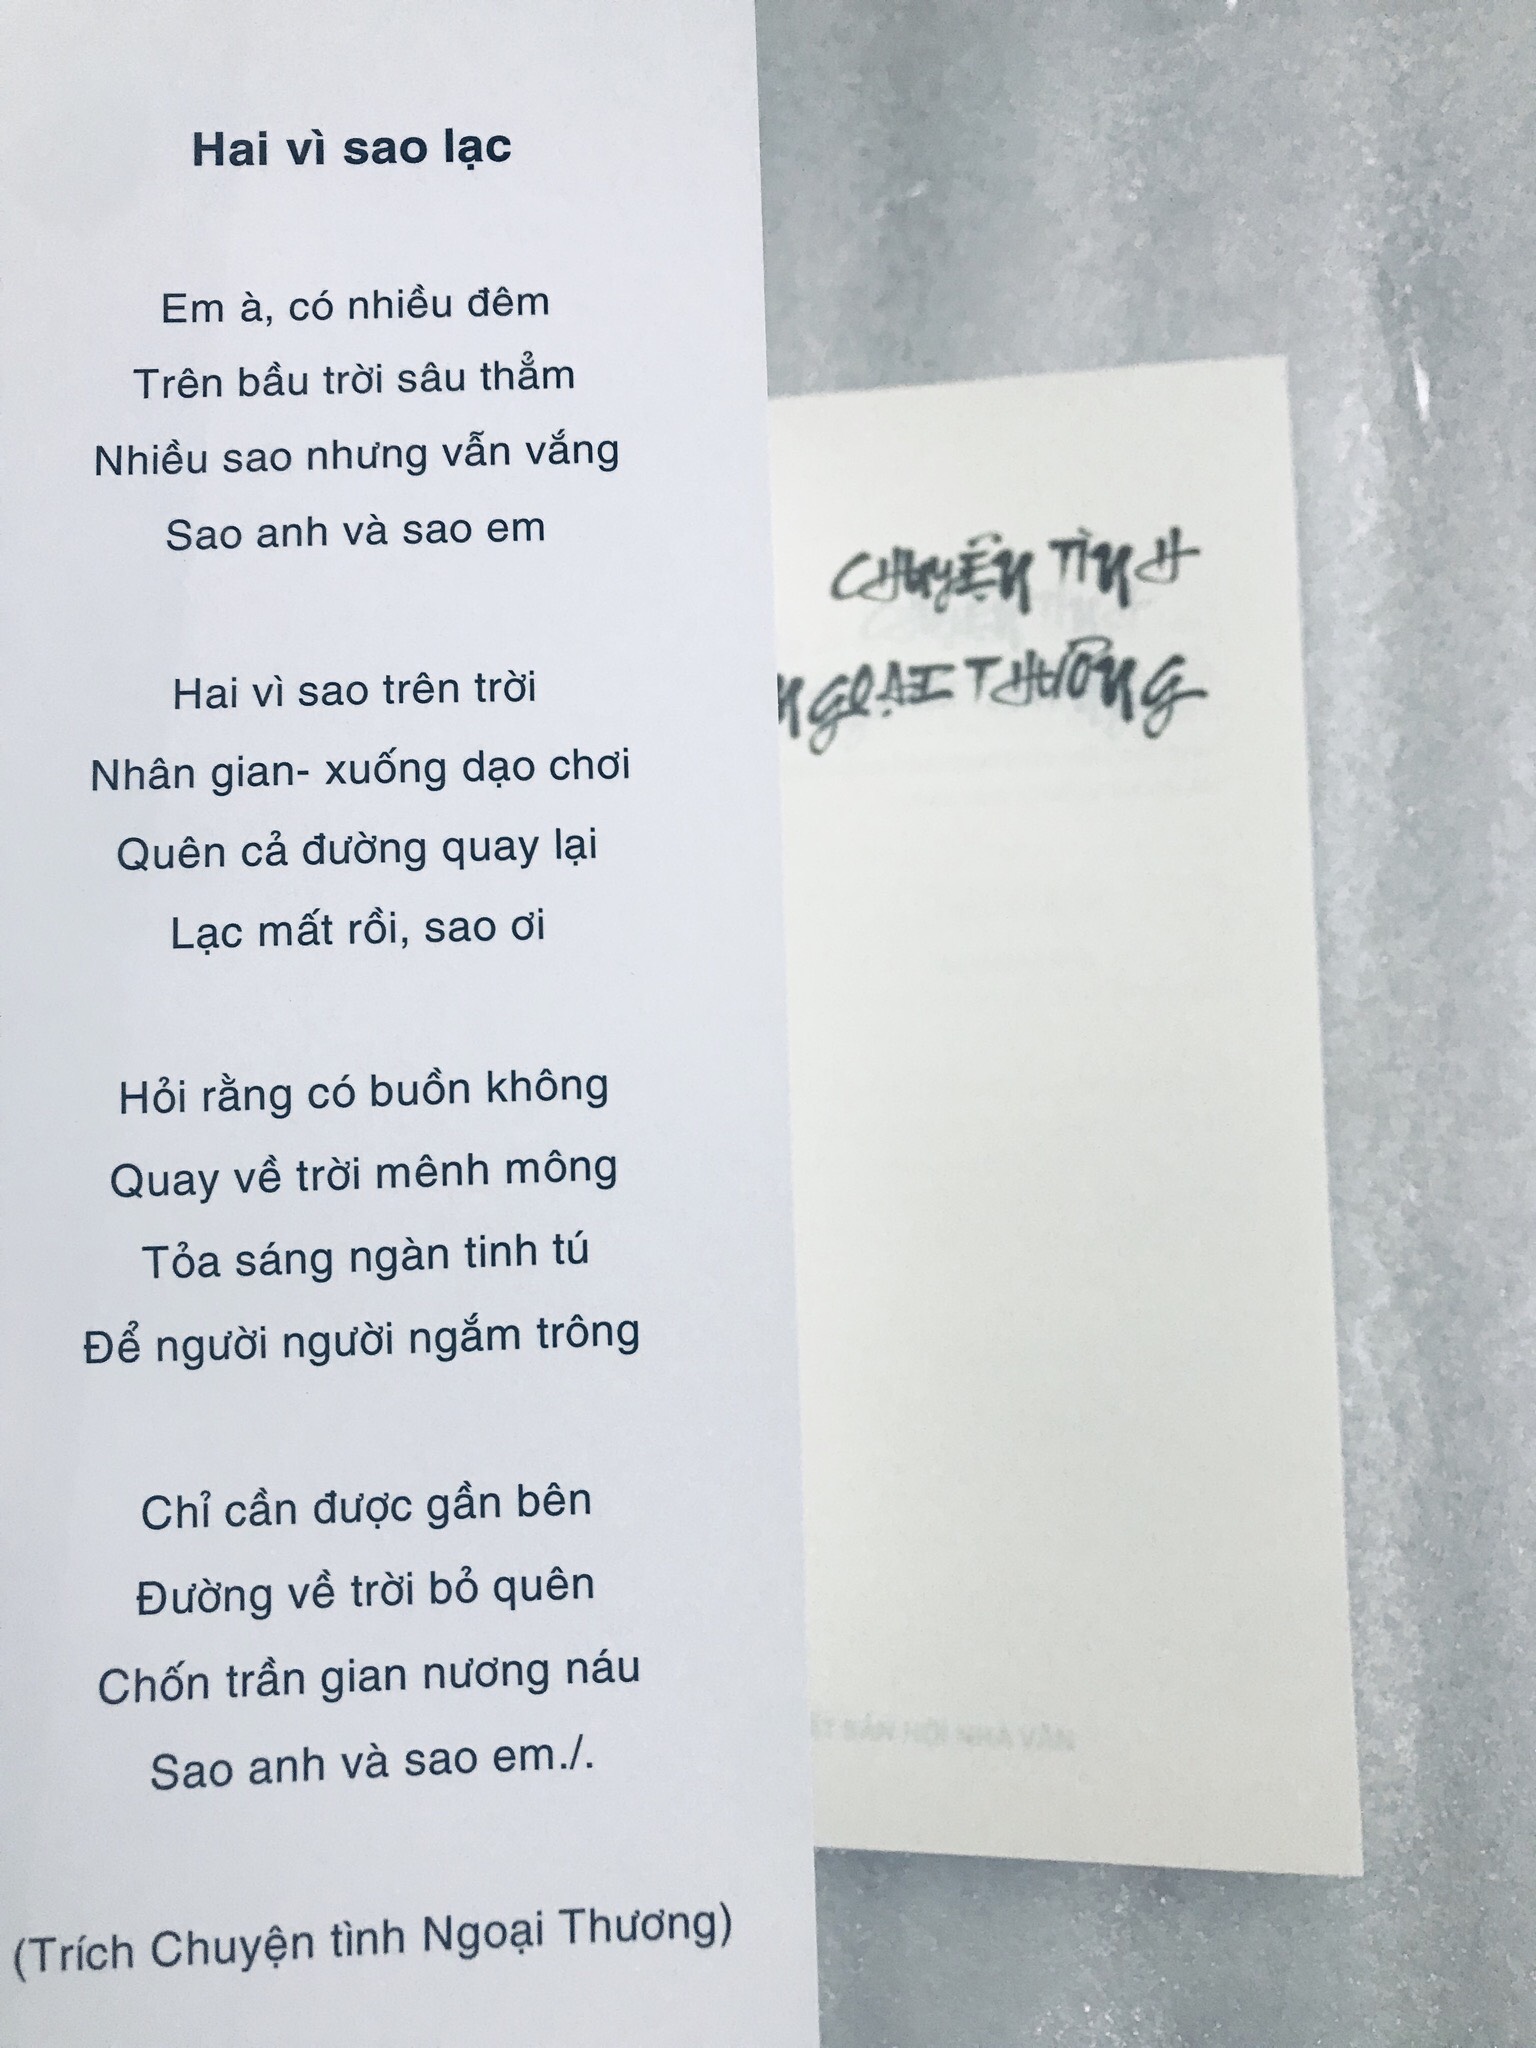 Hai vì sao lạc
Em à, có nhiều đêm
Trên bầu trời sâu thẳm
Nhiều sao nhưng vẫn vắng
Sao anh và sao em
Hai vì sao trên trời
Nhân gian- xuống dạo chơi
Quên cả đường quay lại
Lạc mất rồi, sao ơi
Hỏi rằng có buồn không
Quay về trời mênh mông
Tỏa sáng ngàn tinh tú
Để người người ngắm trông
Chỉ cần được gần bên
Đường về trời bỏ quên
Chốn trần gian nương náu
Sao anh và sao em./.
(Trích Chuyện tình Ngoại Thương)
CHUYỆN TÌNH
NGOẠI THƯƠNG